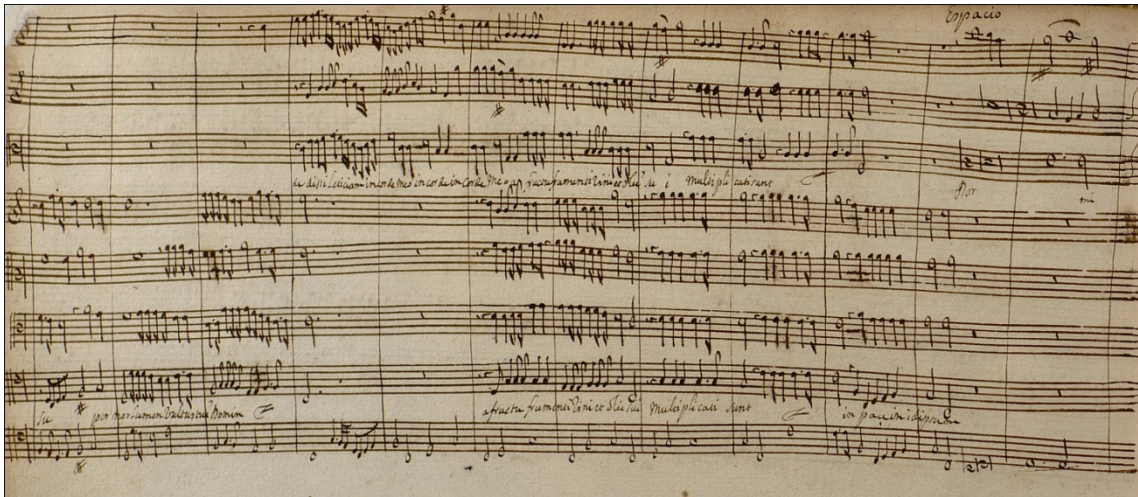 Espacio
de disti letitiam in corde meo in corde in corde meo a fructu frumenti Vini et Olei su i multipli cati sunt
Dor mi
su per nos lumen Vultus tui Domin
a fructu frumenti Vini et Olei sui multiplicati sunt in pace in idipsum